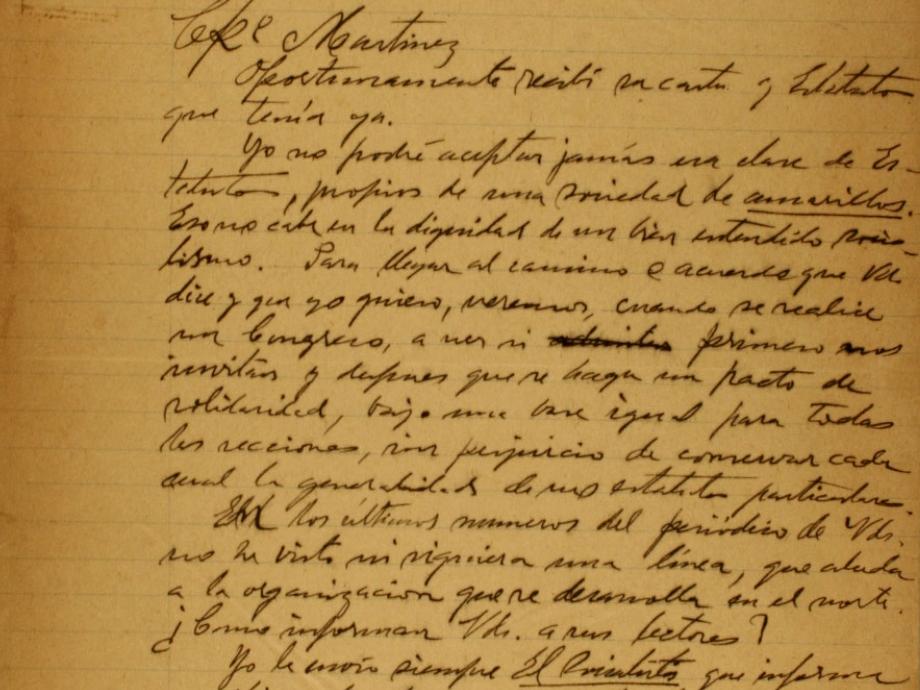 Cp.º Martinez
Oportunamente recibí su carta y Estatuto
que tenía ya.
Yo no podré aceptar jamás esa clase de Es-
tatutos, propios de una sociedad de amarillos.
Eso no cabe en la dignidad de un bien entendido socia-
lismo. Para llegar al camino o acuerdo que Vd.
dice y que yo quiero, veremos, cuando se realice
un Congreso, a ver si primero nos
invitan y despues que se haga un pacto de
solidaridad, bajo una base igual para todas
las secciones, sin perjuicio de conservar cada
cual la generalidad de sus estatutos particulare-
En los últimos numeros del periódico de Vds.
no he visto ni siquiera una línea, que aluda
a la organizacion que se desarrolla en el norte.
¿Como informan Vds. a sus lectores?
Yo le envío siempre El Socialista, que informa